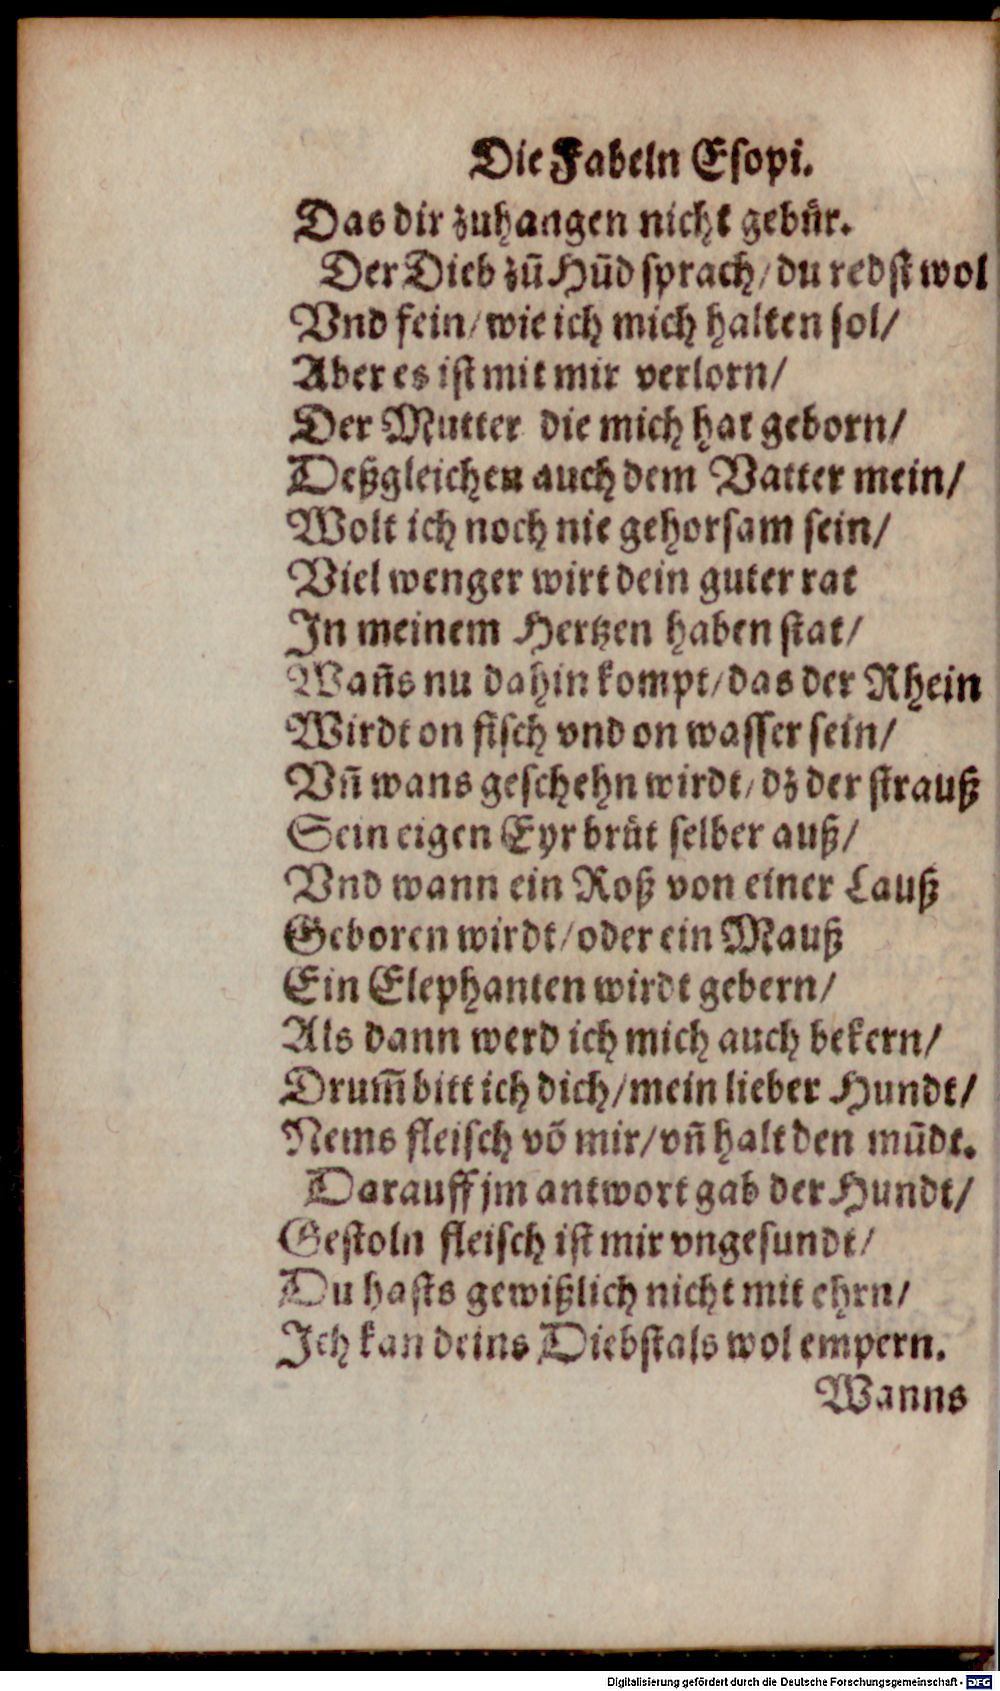 Die Fabeln Esopi.
Das dir zuhangen nicht gebür.
Der Dieb zū Hūd sprach/du redst wol
Vnd fein/wie ich mich halten sol/
Aber es ist mit mir verlorn/
Der Mutter die mich hat geborn/
Deßgleichen auch dem Vatter mein/
Wolt ich noch nie gehorsam sein/
Viel wenger wirt dein guter rat
In meinem Hertzen haben stat/
Wañs nu dahin kompt/das der Rhein
Wirdt on fisch vnd on wasser sein/
Vñ wans geschehn wirdt/dz der strauß
Sein eigen Eyr brüt selber auß/
Vnd wann ein Roß von einer Lauß
Geboren wirdt/oder ein Mauß
Ein Elephanten wirdt gebern/
Als dann werd ich mich auch bekern/
Drum̃ bitt ich dich/mein lieber Hundt/
Nems fleisch vō mir/vñ halt den mūdt.
Darauff jm antwort gab der Hundt/
Gestoln fleisch ist mir vngesundt/
Du hasts gewißlich nicht mit ehrn/
Ich kan deins Diebstals wol empern.
Wanns
Digitalisierung gefördert durch die Deutsche Forschungsgemeinschaft - DFG